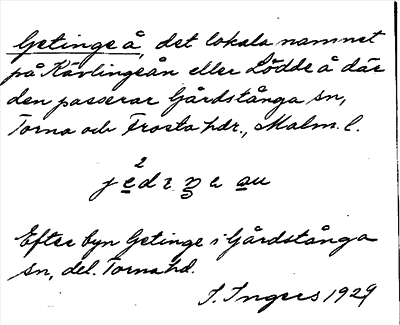 Getinge å, det lokala namnet
på Kävlingeån eller Lödde å där
den passerar Gårdstånga sn,
Torna och Frosta hdr., Malm. l.
2
Efter byn Getinge i Gårdstånga
sn, del. Torna hd.
I. Ingers 1929